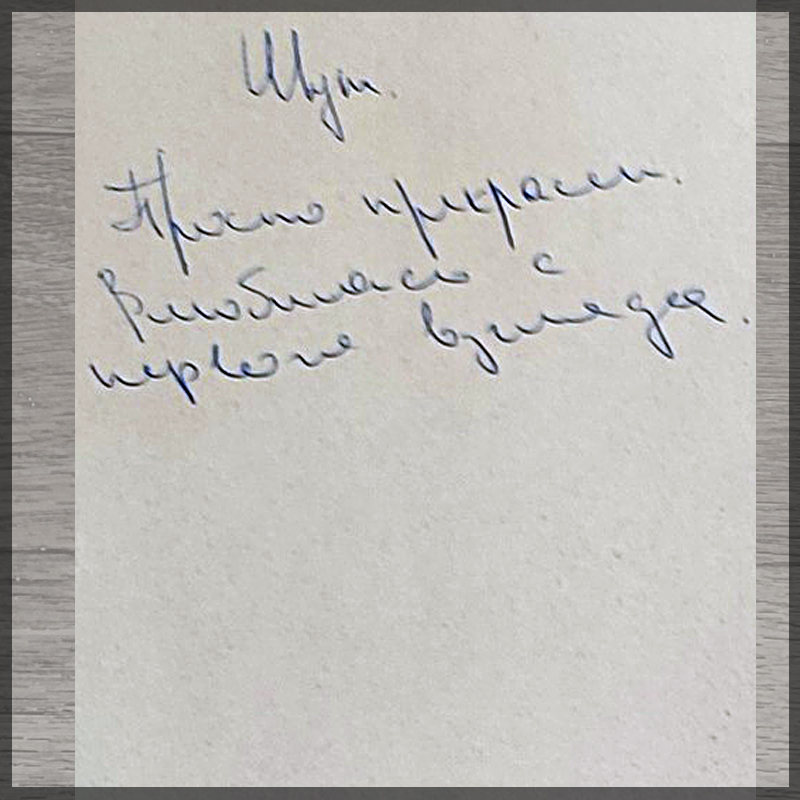 Шут.
Просто прекрасен.
Влюбилась с
первого взгляда.